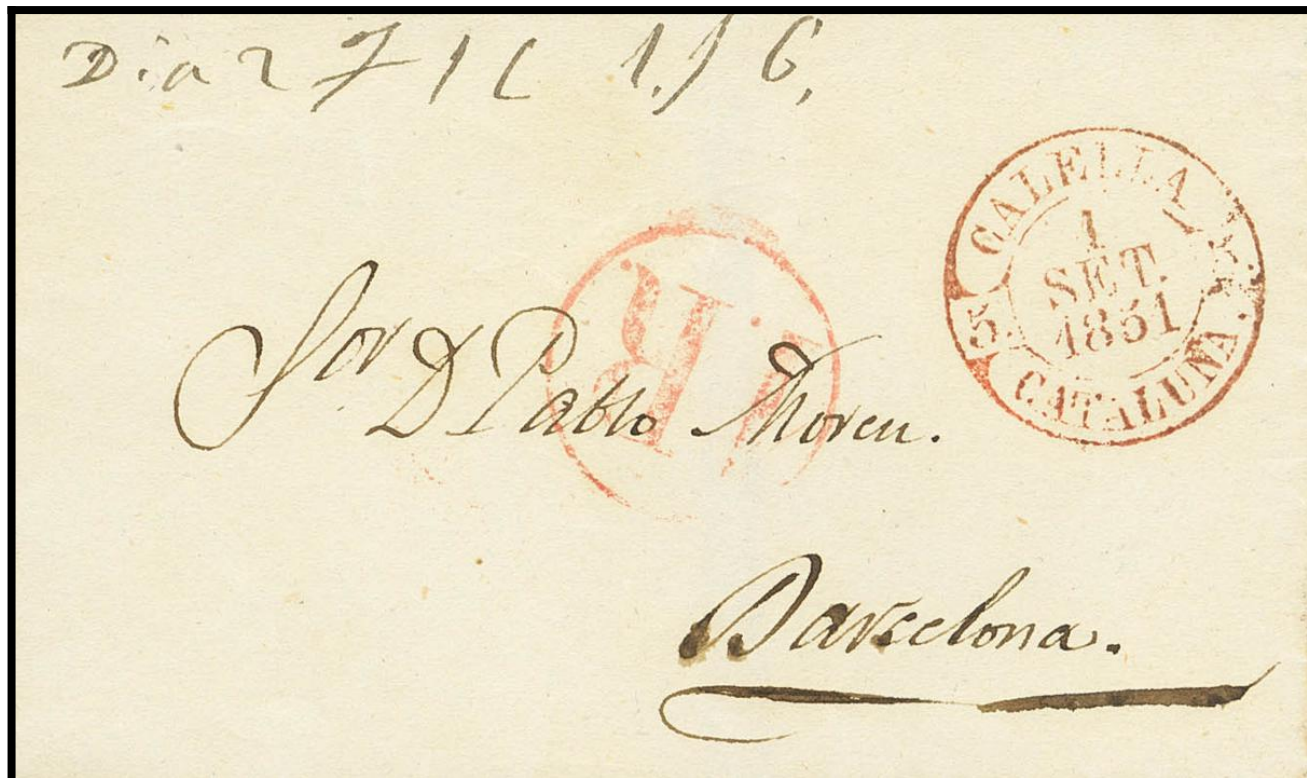 Dia 2
CALELLA
1
SET.
1851
5
CATALUÑA.
R
Sor D Pablo Moreu.
Barcelona.